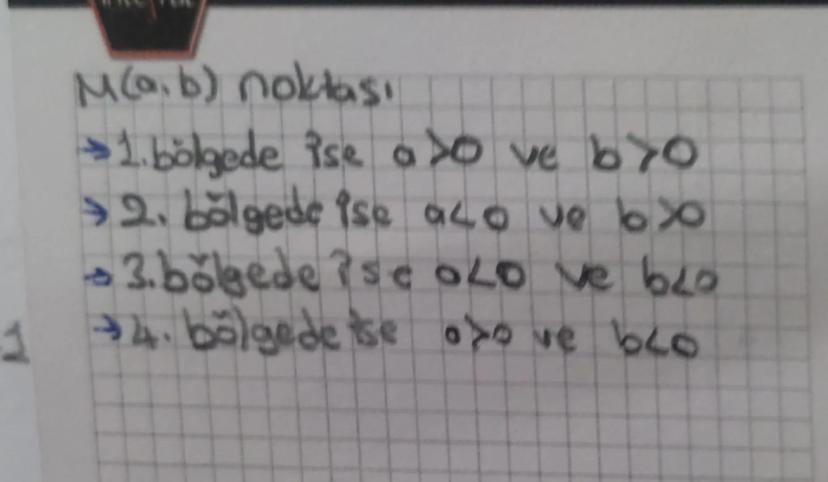 M(a,b) noktası
→ 1. bölgede ise a>0 ve b>0
→ 2. bölgede ise a<0 ve b>0
→ 3. bölgede ise a<0 ve b<0
→ 4. bölgede ise a>0 ve b<0
1